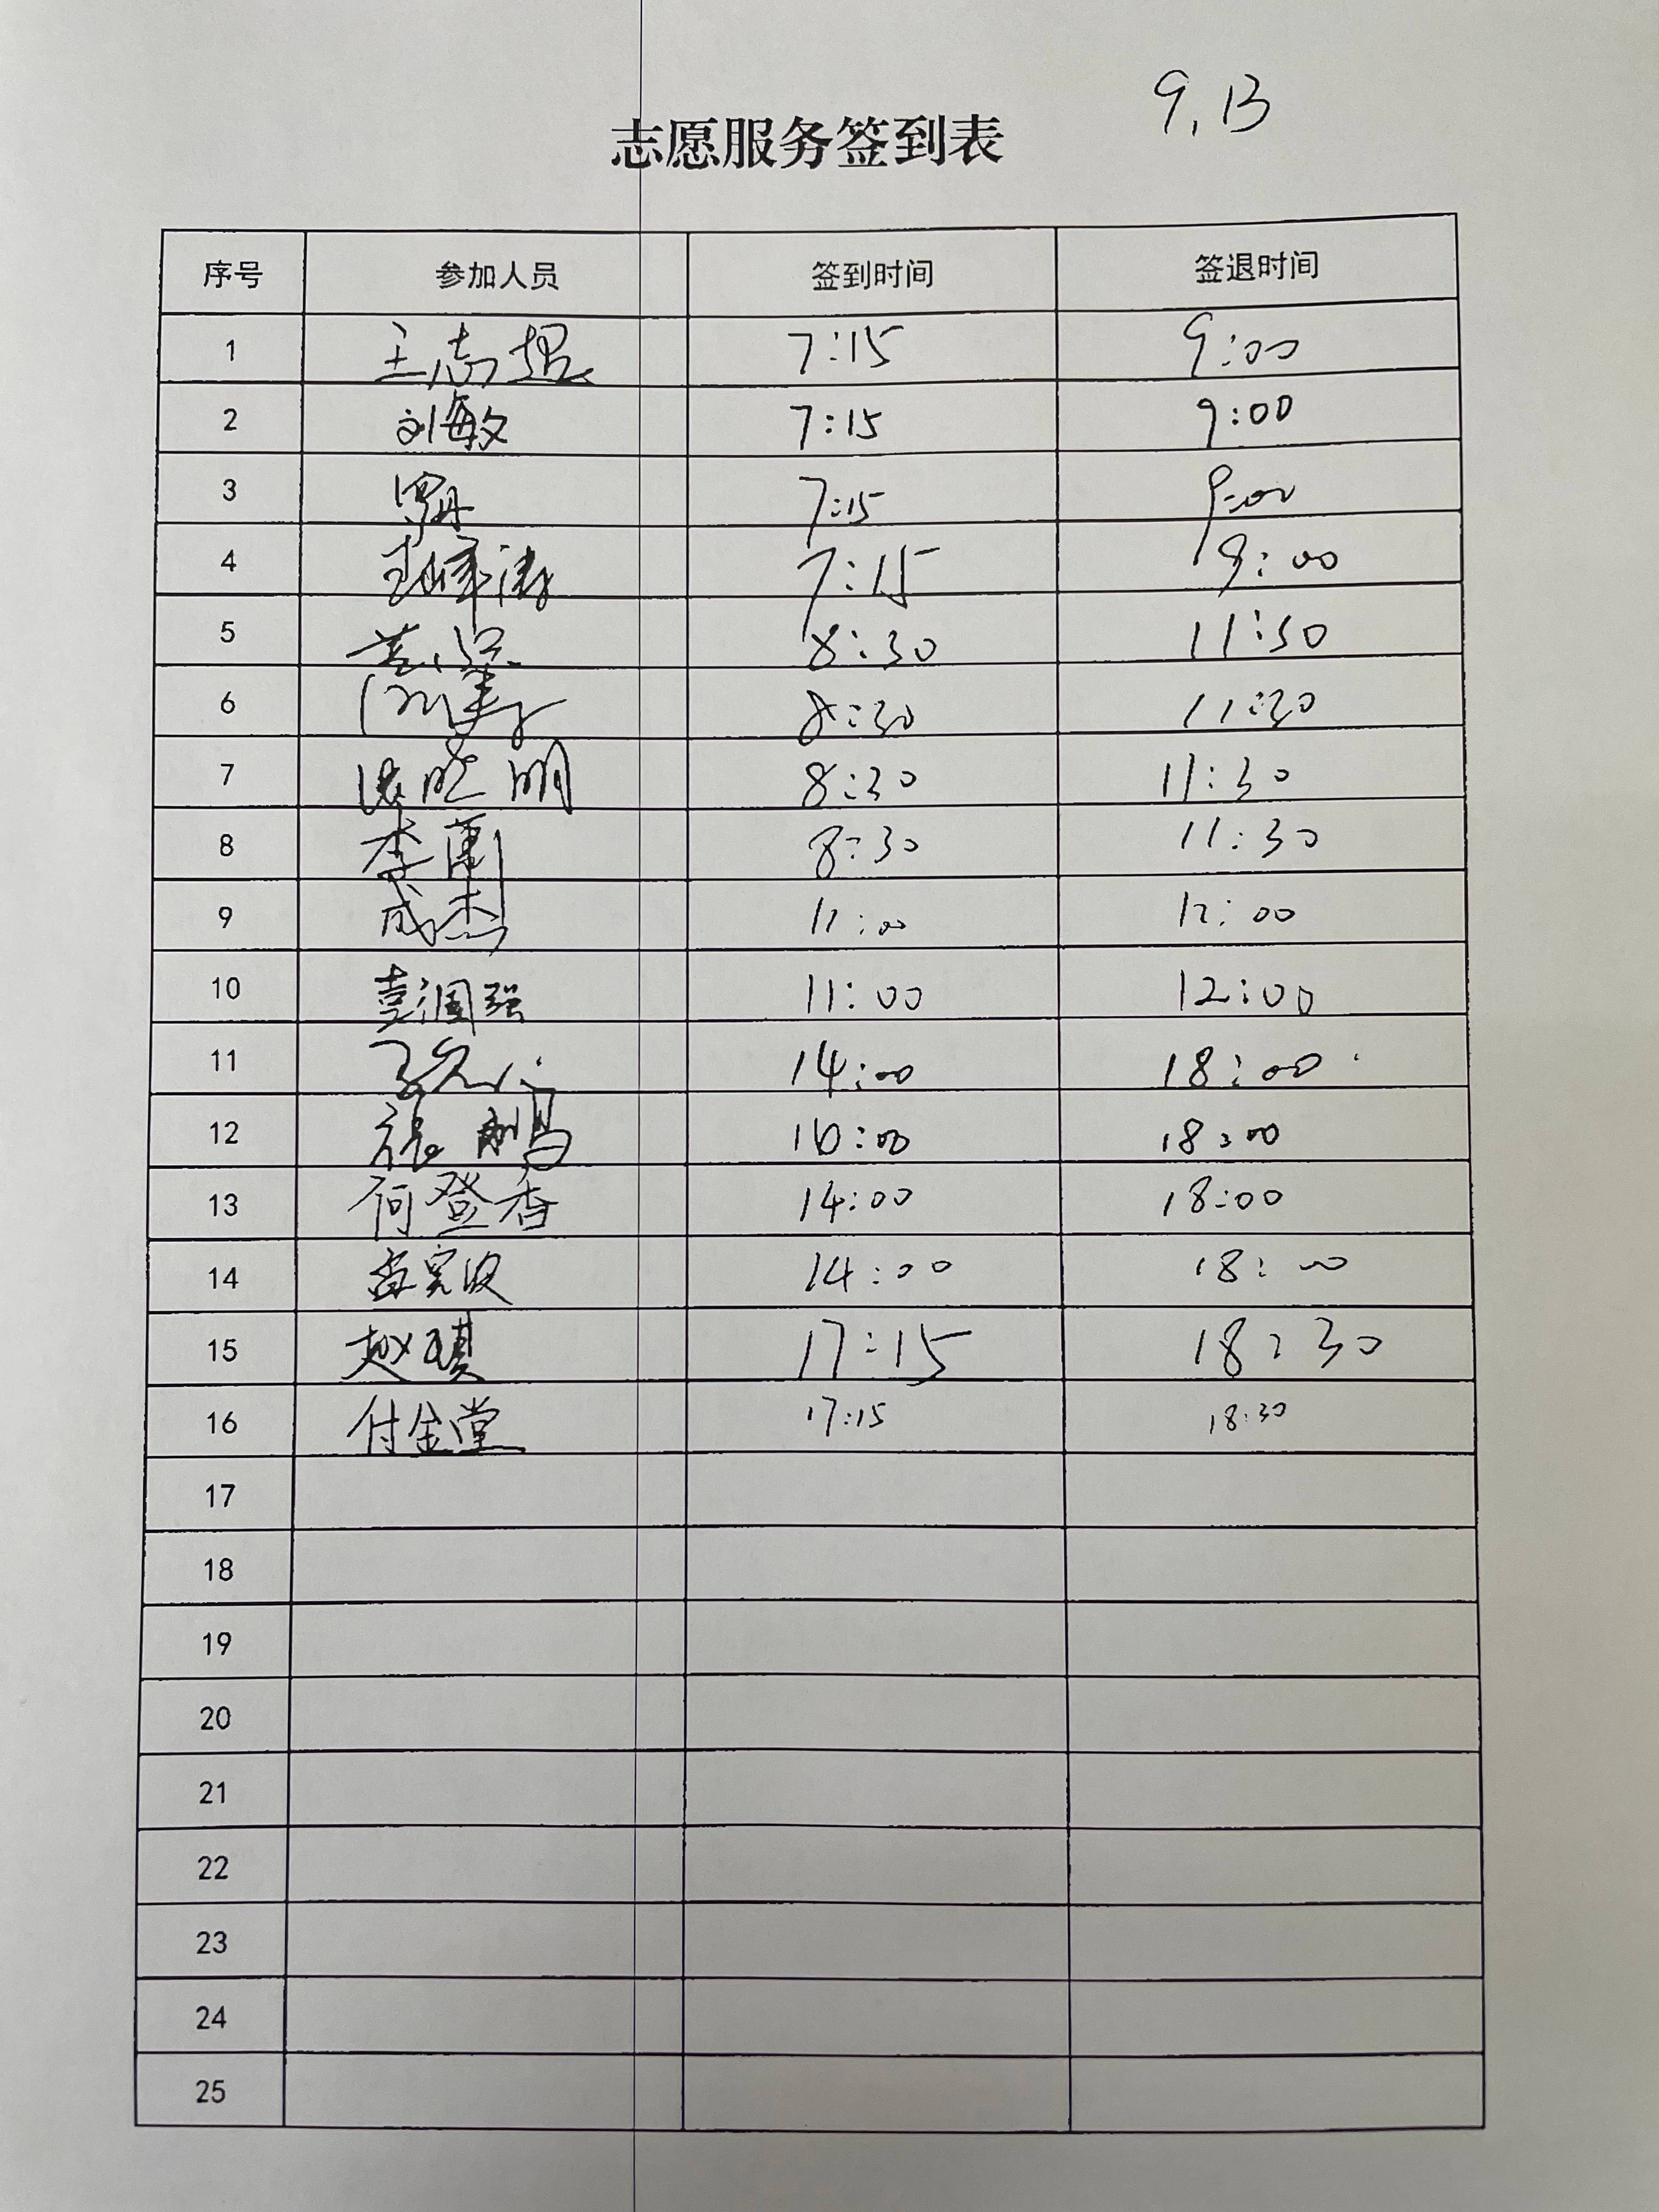 9.13
志愿服务签到表
序号 参加人员 签到时间 签退时间
1 王志堒 7:15 9:00
2 刘海敏 7:15 9:00
3 罗丹 7:15 9:00
4 王峰涛 7:15 9:00
5 8:30 11:30
6 8:30 11:30
7 晓明 8:30 11:30
8 李蘭 8:30 11:30
9 成杰 11:00 12:00
10 彭润强 11:00 12:00
11 14:00 18:00
12 张鹏 16:00 18:00
13 何登香 14:00 18:00
14 14:00 18:00
15 赵琪 17:15 18:30
16 付金堂 17:15 18:30
17
18
19
20
21
22
23
24
25